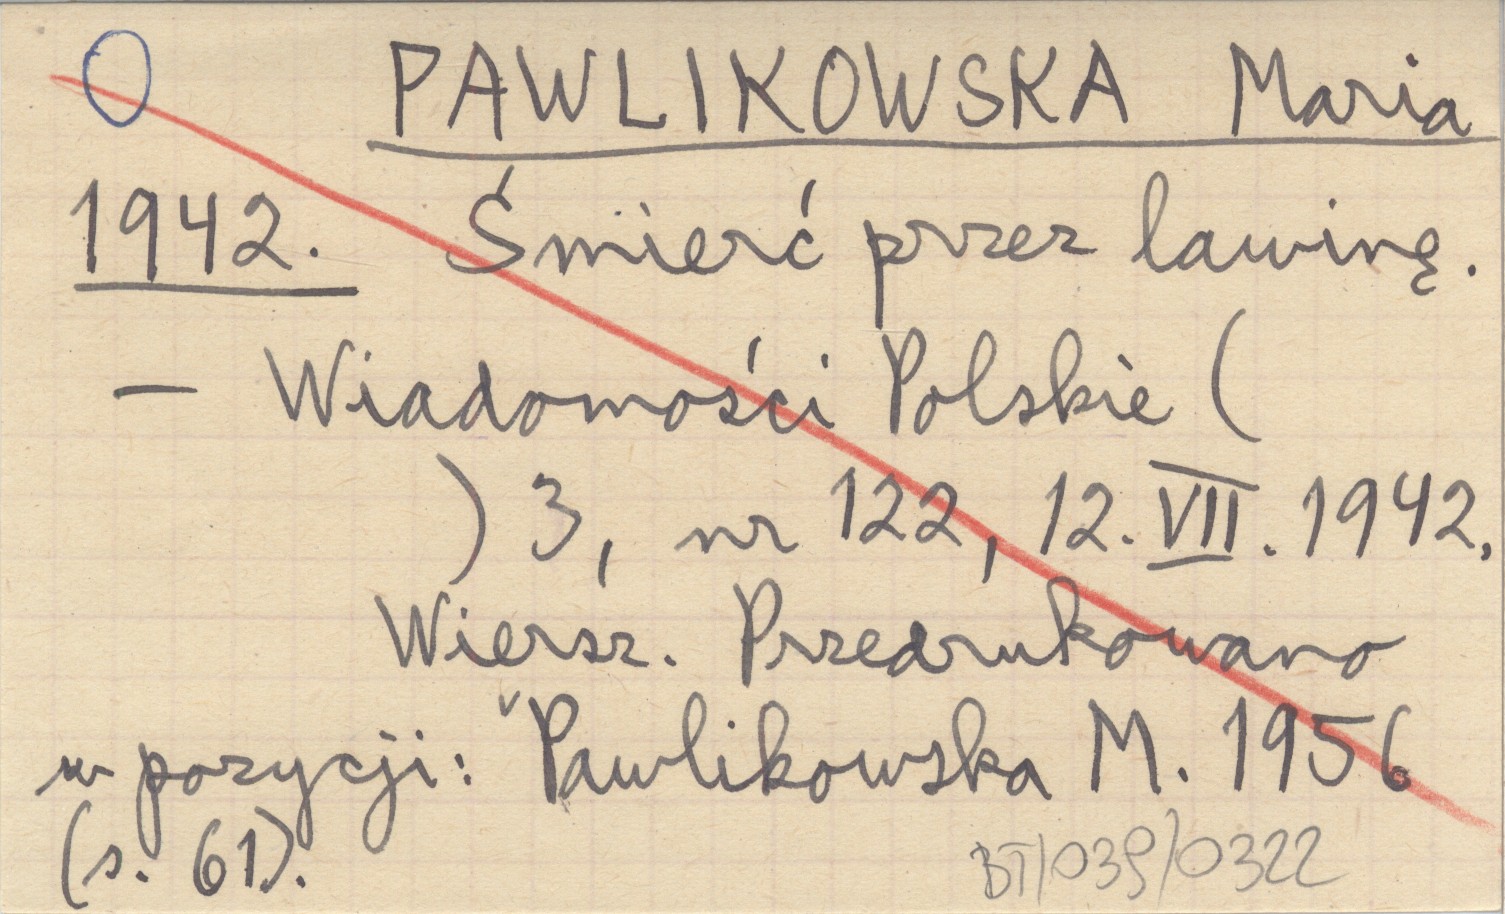 PAWLIKOWSKA Maria
1942. Śmierć przez lawinę.
— Wiadomości Polskie (
) 3, nr 122, 12. VII. 1942,
Wiersz. Przedrukowano
w pozycji: Pawlikowska M. 1956
(s. 61).
BT/039/0322